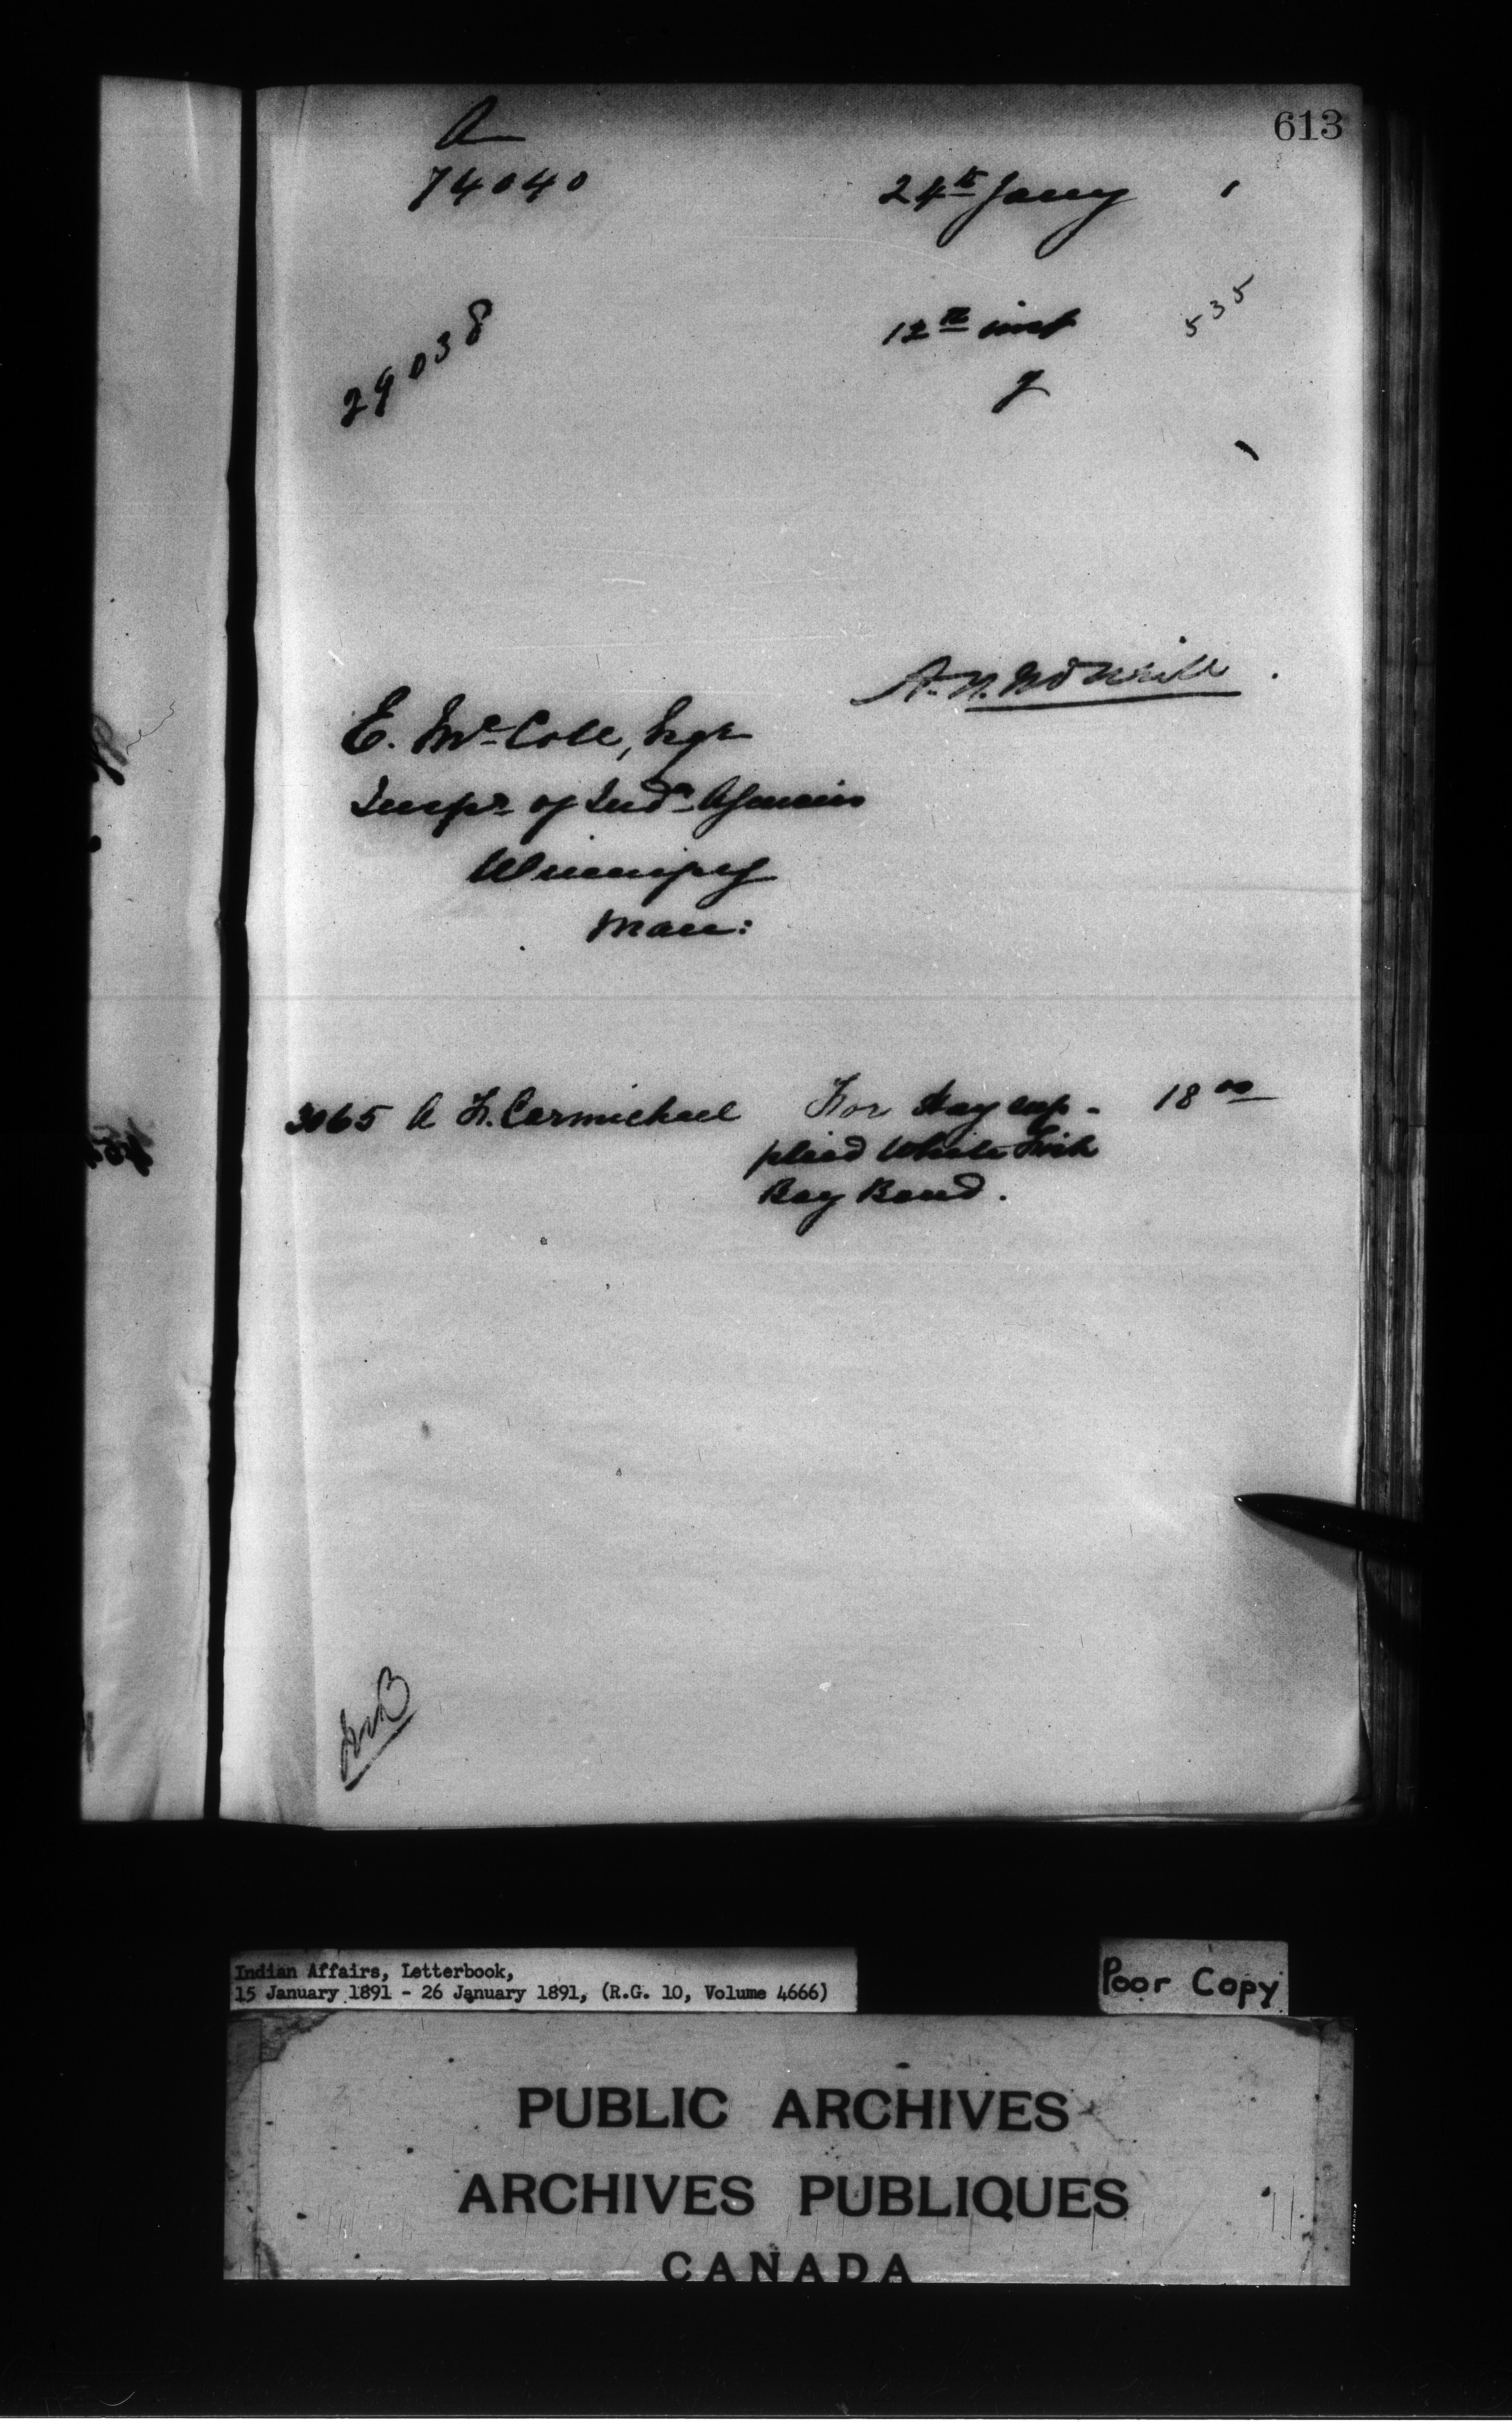 613
A
74040
24th Jany 1
29038
12th inst
535
A. N. McNeill.
E. McColl, Esqr
Inspr of Indn Agencies
Winnipeg
Man:
3065 A L. Carmichael For Hay sup- 18 00
plied White Fish
Bay Band.
Indian Affairs, Letterbook,
15 January 1891 - 26 January 1891, (R.G. 10, Volume 4666)
Poor Copy
PUBLIC ARCHIVES
ARCHIVES PUBLIQUES
CANADA